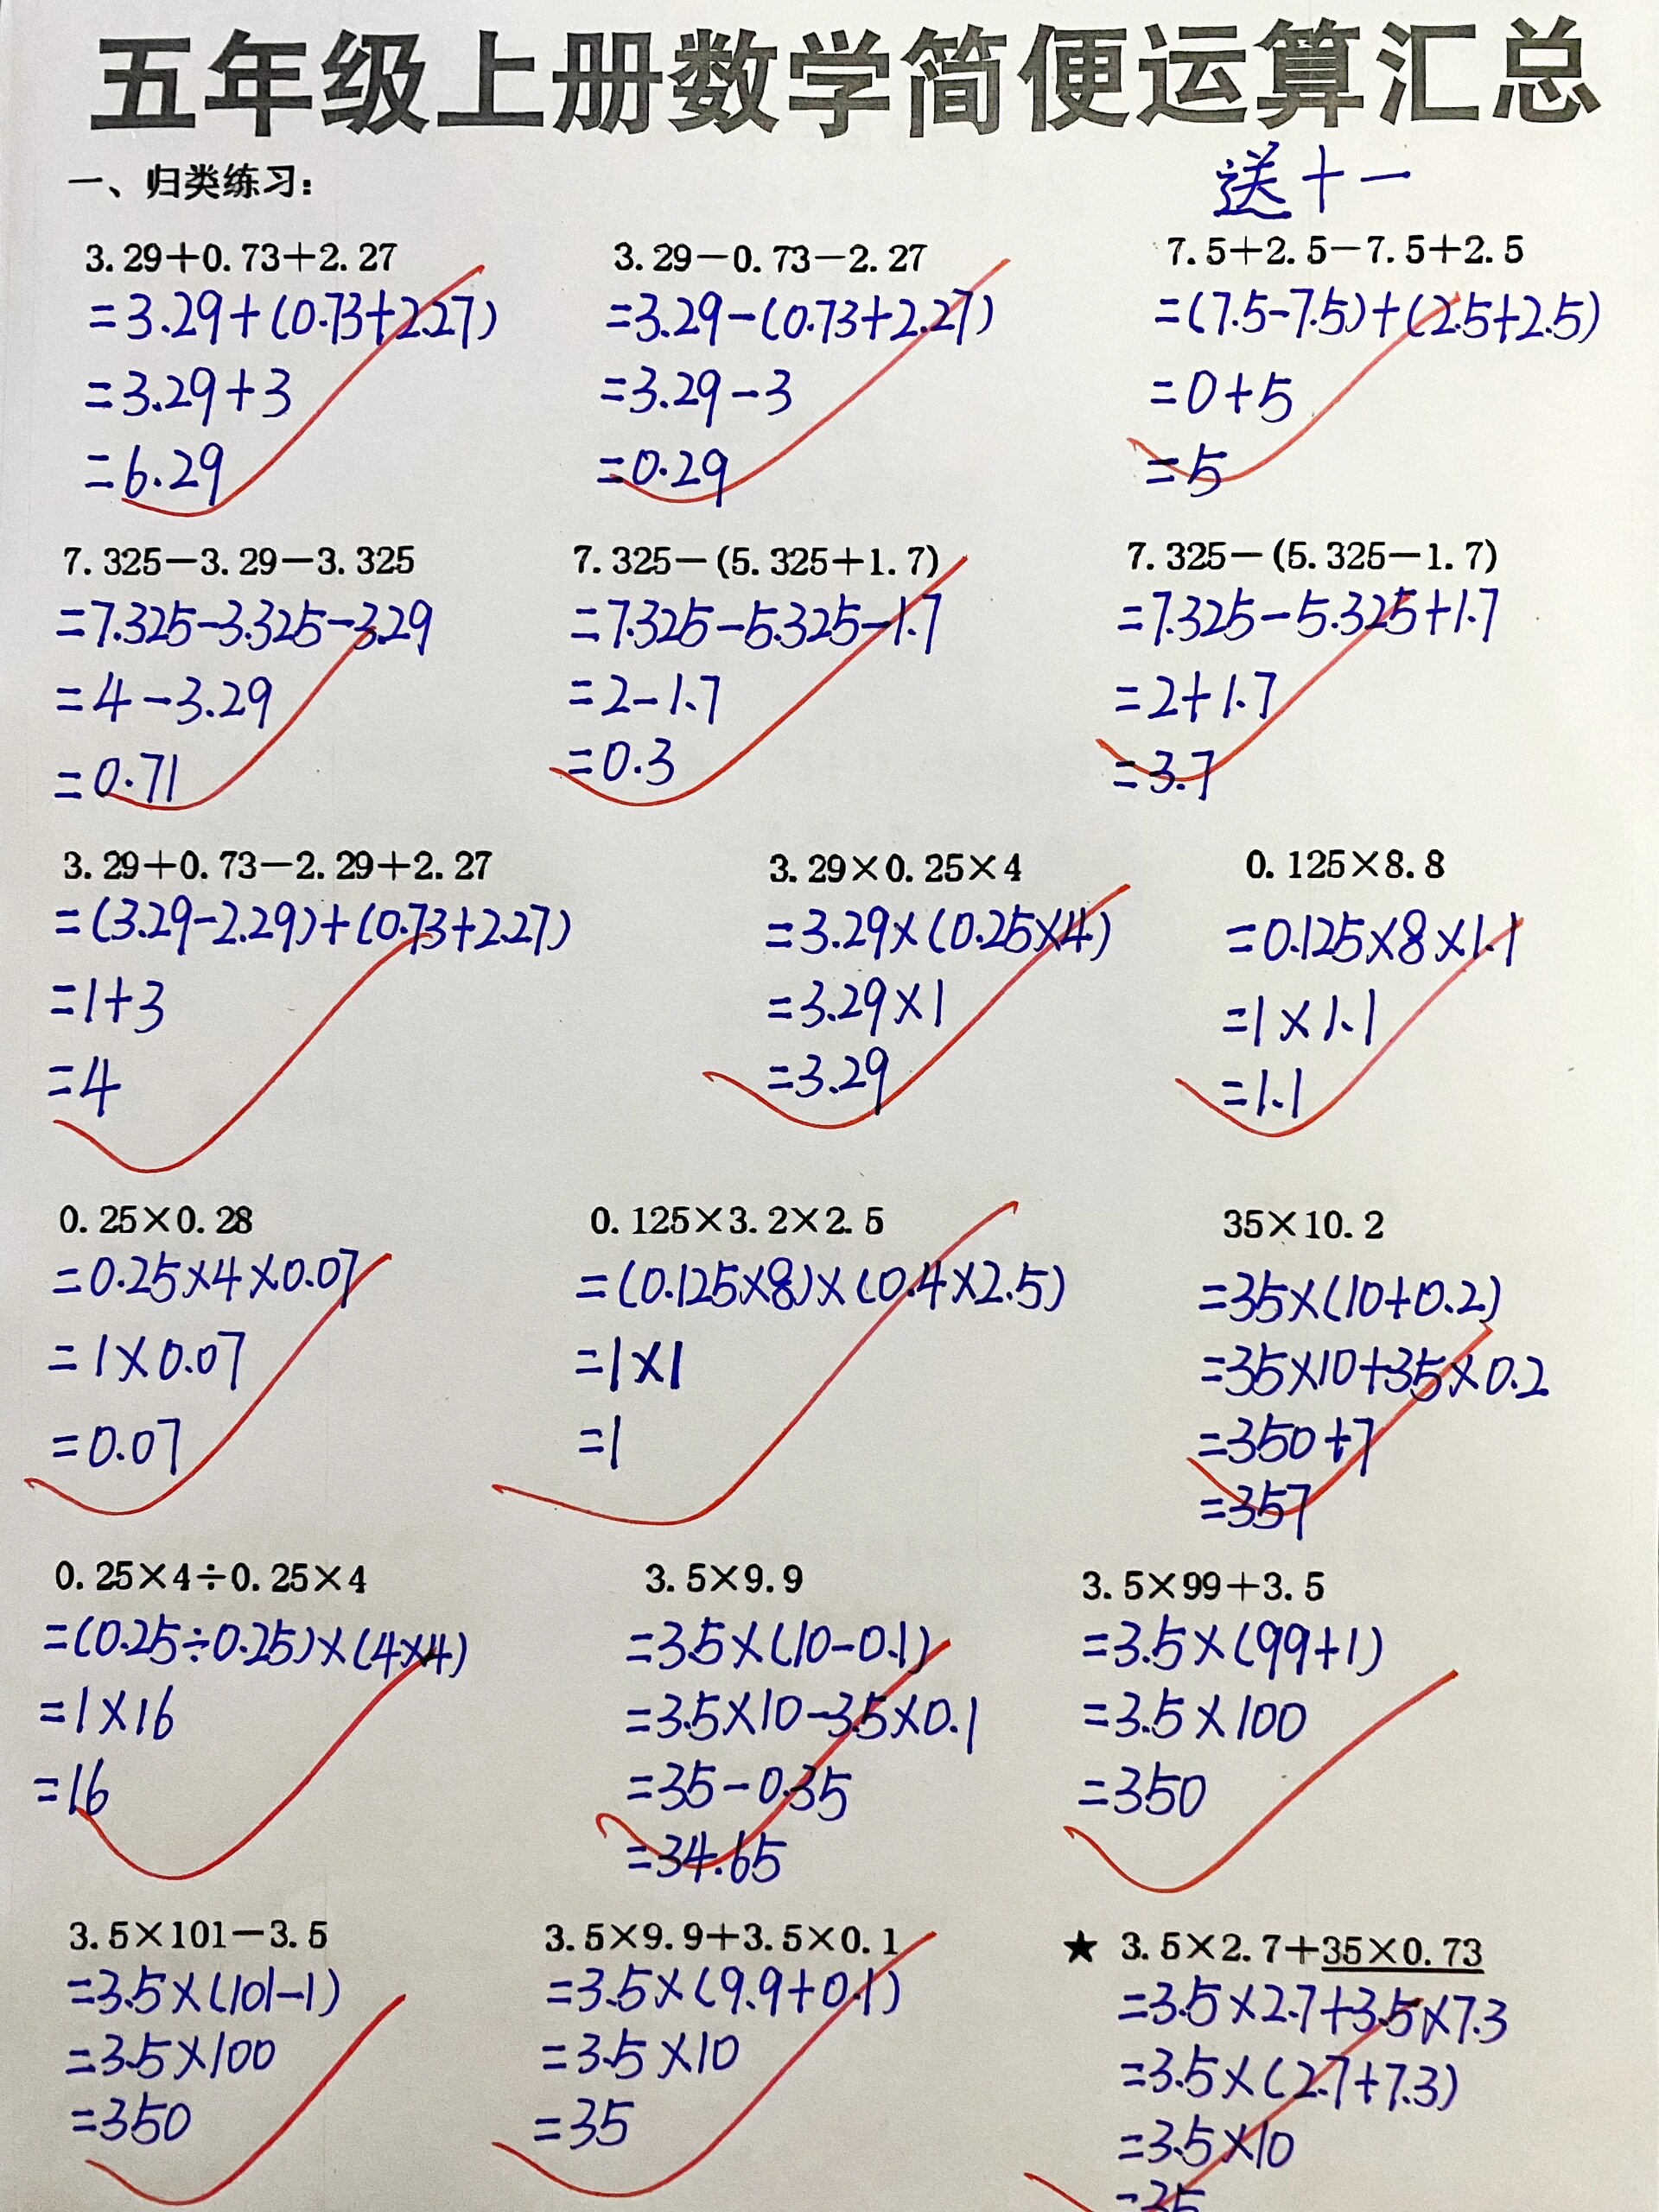 五年级上册数学简便运算汇总
一、归类练习：
送十一
3.29+0.73+2.27
=3.29+(0.73+2.27)
=3.29+3
=6.29
3.29-0.73-2.27
=3.29-(0.73+2.27)
=3.29-3
=0.29
7.5+2.5-7.5+2.5
=(7.5-7.5)+(2.5+2.5)
=0+5
=5
7.325-3.29-3.325
=7.325-3.325-3.29
=4-3.29
=0.71
7.325-(5.325+1.7)
=7.325-5.325-1.7
=2-1.7
=0.3
7.325-(5.325-1.7)
=7.325-5.325+1.7
=2+1.7
=3.7
3.29+0.73-2.29+2.27
=(3.29-2.29)+(0.73+2.27)
=1+3
=4
3.29×0.25×4
=3.29×(0.25×4)
=3.29×1
=3.29
0.125×8.8
=0.125×8×1.1
=1×1.1
=1.1
0.25×0.28
=0.25×4×0.07
=1×0.07
=0.07
0.125×3.2×2.5
=(0.125×8)×(0.4×2.5)
=1×1
=1
35×10.2
=35×(10+0.2)
=35×10+35×0.2
=350+7
=357
0.25×4÷0.25×4
=(0.25÷0.25)×(4×4)
=1×16
=16
3.5×9.9
=3.5×(10-0.1)
=3.5×10-3.5×0.1
=35-0.35
=34.65
3.5×99+3.5
=3.5×(99+1)
=3.5×100
=350
3.5×101-3.5
=3.5×(101-1)
=3.5×100
=350
3.5×9.9+3.5×0.1
=3.5×(9.9+0.1)
=3.5×10
=35
★ 3.5×2.7+35×0.73
=3.5×2.7+3.5×7.3
=3.5×(2.7+7.3)
=3.5×10
=35